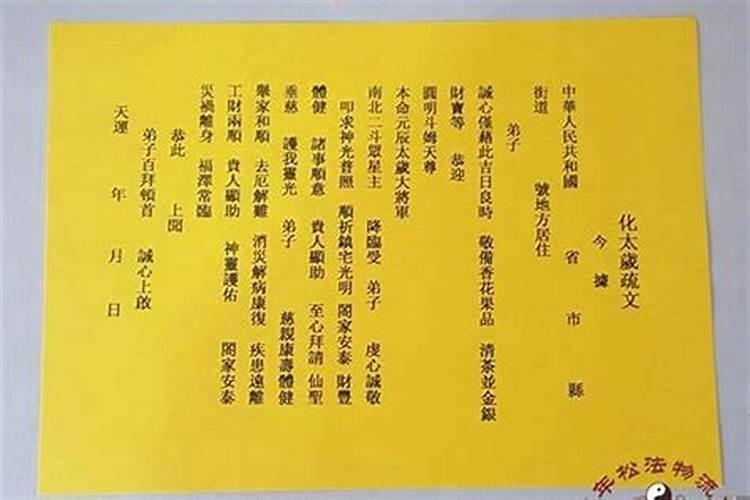 化太歲疏文
今據
中華人民共和國 省 市 縣
街道 號地方居住
弟子
誠心僅藉此吉日良時 敬備香花果品 清茶並金銀
財寶等 恭迎
圓明斗姆天尊
本命元辰太歲大將軍
南北二斗眾星主 降臨受 弟子 虔心誠敬
叩求神光普照 順祈鎮宅光明 闔家安泰 財豐
體健 諸事順意 貴人顯助 至心拜請 仙聖
垂慈 護我靈光 弟子 慈親康壽體健
舉家和順 去厄解難 消災解病康復 疾患遠離
工財兩順 貴人顯助 神靈護佑 闔家安泰
災禍離身 福澤常臨
恭此 上聞
弟子百拜頓首 誠心上啟
天運 年 月 日
年松法物流